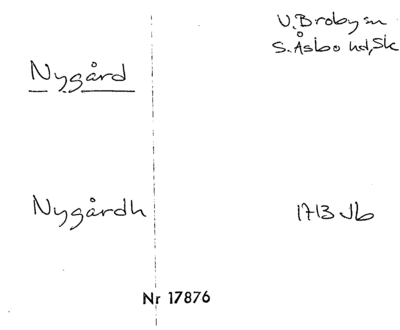 V. Broby sn
S. Åsbo hd, Sk
Nygård
Nygårdh
1713 Jb
Nr 17876